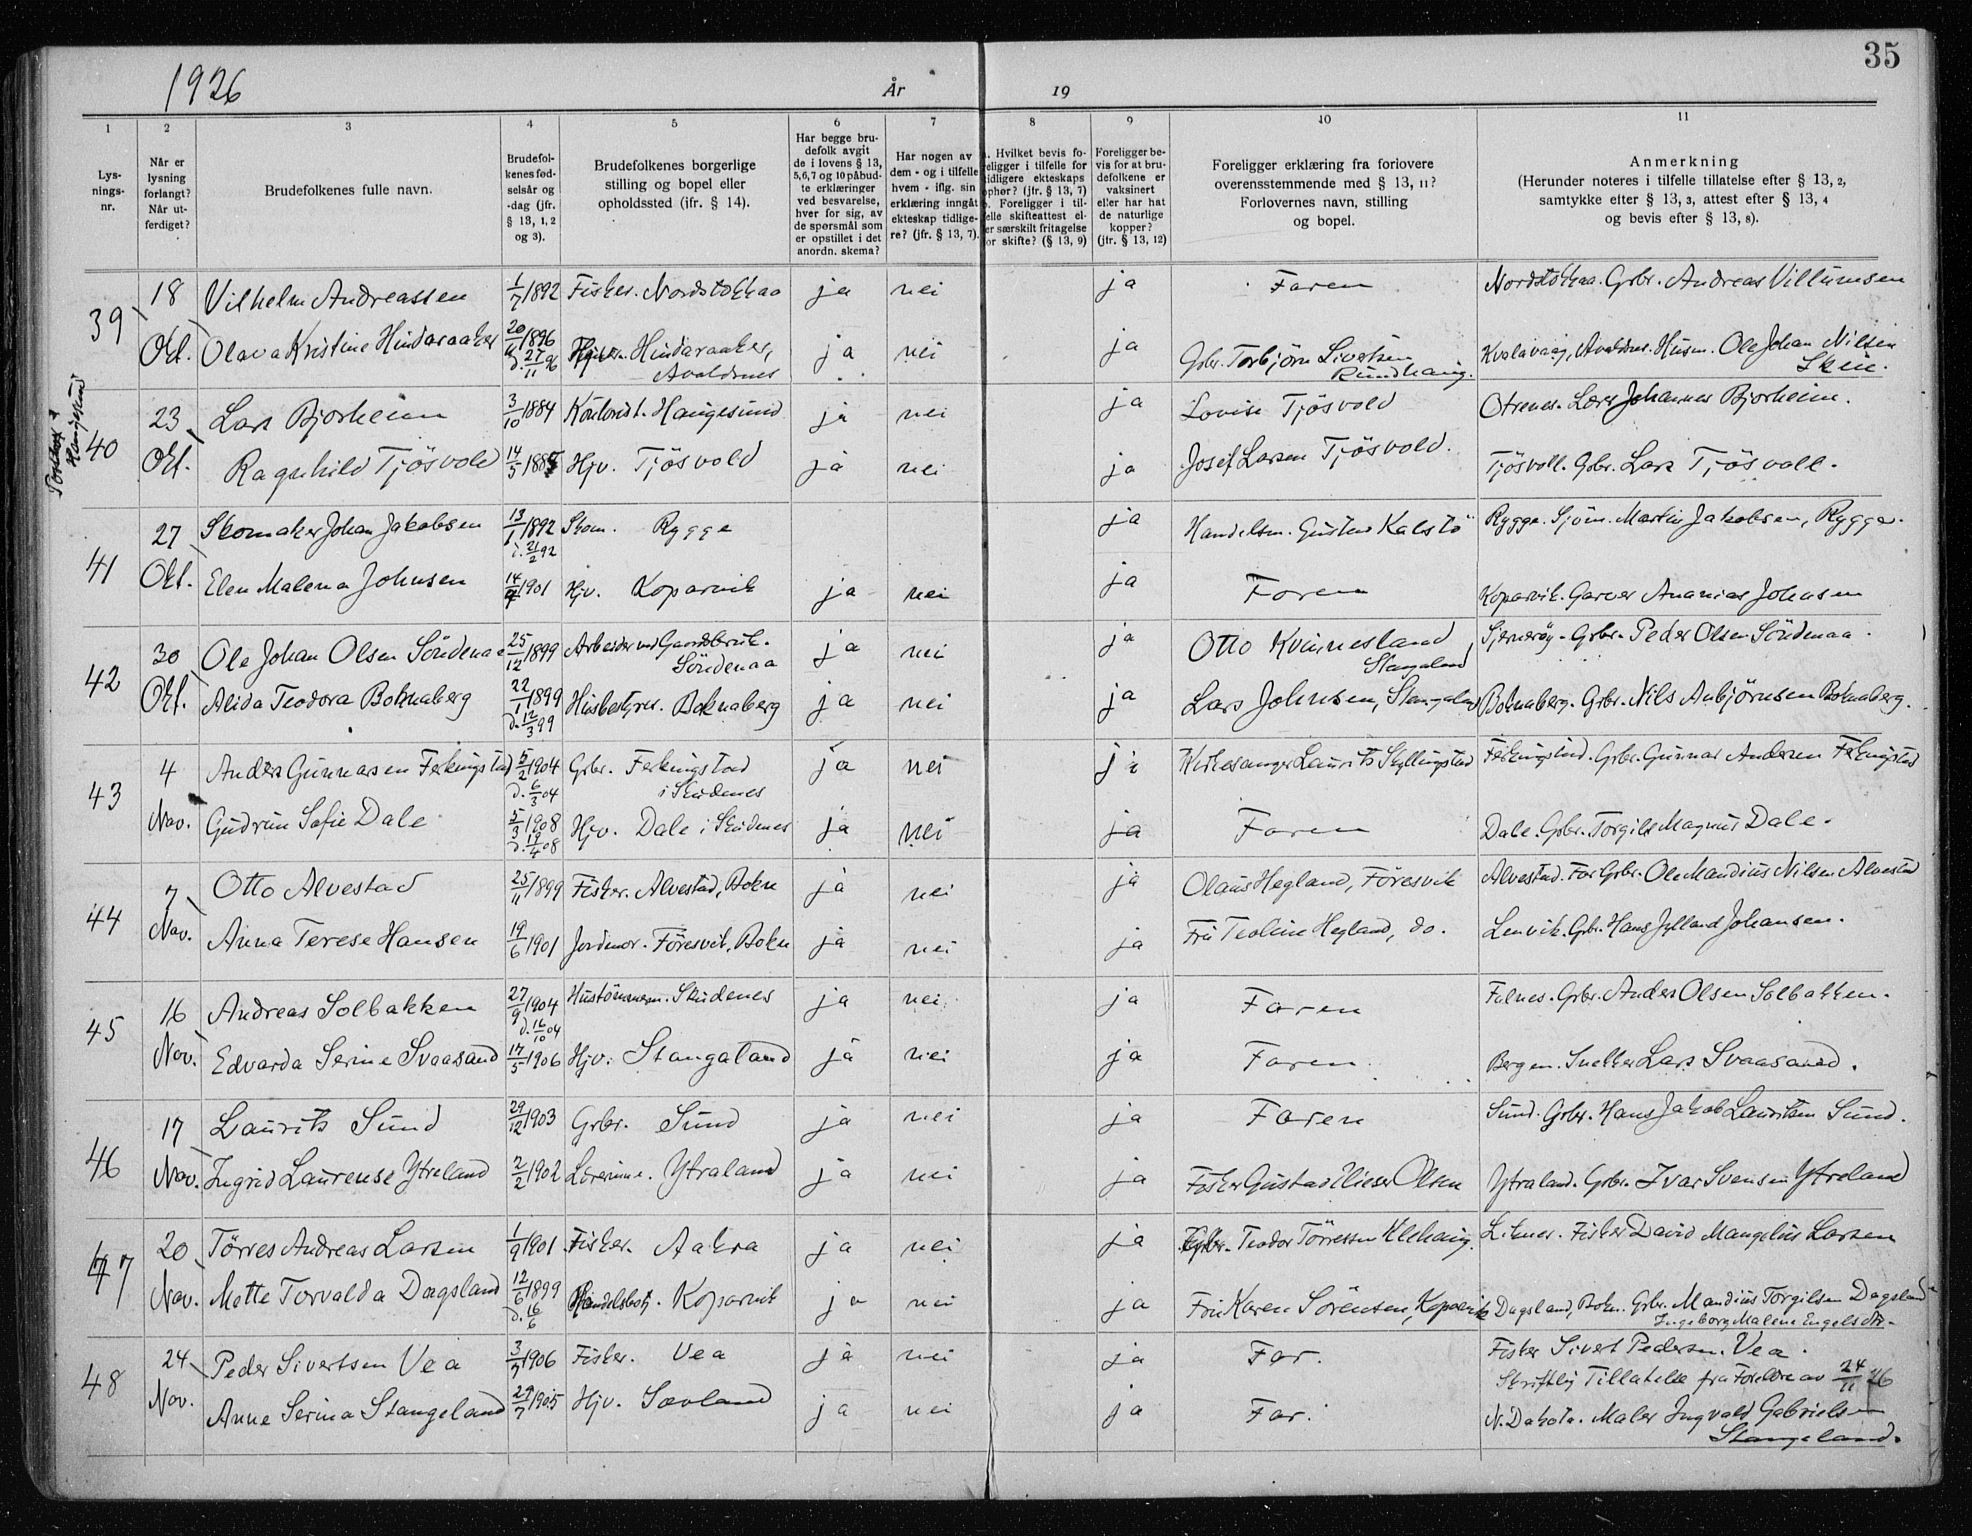 1926
År
19
35
1
2
3
4
5
6
7
8
9
10
11
Lys-
nings-
nr.
Når er
lysning
forlangt?
Når ut-
ferdiget?
Brudefolkenes fulle navn.
Brudefol-
kenes fød-
selsår og
-dag (jfr.
§ 13, 1, 2
og 3).
Brudefolkenes borgerlige
stilling og bopel eller
opholdssted (jfr. § 14).
Har begge bru-
defolk avgit
de i lovens § 13,
5,6,7 og 10 påbud-
te erklæringer
ved besvarelse,
hver for sig, av
de spørsmål som
er opstillet i det
anordn. skema?
Har nogen av
dem - og i tilfelle
hvem - iflg. sin
erklæring inngåt
ekteskap tidlige-
re? (jfr. § 13, 7).
a. Hvilket bevis fo-
religger i tilfelle for
tidligere ekteskaps
ophør? (jfr. § 13, 7)
b. Foreligger i til-
felle skifteattest el-
ler særskilt fritagelse
for skifte? (§ 13, 9)
Foreligger be-
vis for at bru-
defolkene er
vaksinert
eller har hat
de naturlige
kopper?
(jfr. § 13, 12)
Foreligger erklæring fra forlovere
overensstemmende med § 13, 11?
Forlovernes navn, stilling
og bopel.
Anmerkning
(Herunder noteres i tilfelle tillatelse efter § 13, 2,
samtykke efter § 13, 3, attest efter § 13, 4
og bevis efter § 13, 8).
39 18 Vilhelm Andreassen 1/7 1892 Fisker. Nordstokkaa ja nei ja Faren Nordstokkaa. Grbr. Andreas Villumsen
Okt. Olava Kristine Hindaraaker 20/ 1896 d. 27/11 96 Hindaraaker, ja nei ja Grbr. Torbjörn Sivertsen Kvalavaag, Avaldsnes. Husm. Ole Johan Nilsen
Avaldsnes Rundhaug. Skeie.
Haugesund
40 23 Lars Bjorheim 3/10 1884 Haugesund ja nei ja Lovise Tjösvold Otrenes. Lars Johannes Bjorheim.
Okt. Ragnhild Tjösvold 14/5 188 Hjv. Tjösvold ja nei ja Josef Larsen Tjösvold. Tjösvoll. Grbr. Lars Tjösvoll.
41 27 Skomaker Johan Jakobsen 13/1 1892 d. 21/2 92 Skom. Rygge ja Handelsm. Gustav Kalstö Rygge. Sjöm. Martin Jakobsen, Rygge.
Okt. Elen Malena Johnsen 14/ 1901 Hjv. Koparvik ja nei ja Faren Koparvik. Garver Ananias Johnsen
42 30 Ole Johan Olsen Söndenaa 25/12 1899 Arbeider ved Gaardsbruk. ja nei ja Otto Kvinnesland Sjernaröy. Grbr. Peder Olsen Söndenaa.
Söndenaa Stangeland
Okt. Alida Teodora Boknaberg 22/1 1899 d. 12/3 99 Husbestyrer. Boknaberg ja nei ja Lars Johnsen, Stangeland Boknaberg. Grbr. Nils Anbjörnsen Boknaberg.
43 4 Anders Gunnarsen Ferkingstad 5/2 1904 d. 6/3 04 Grbr. Ferkingstad ja nei ja Kirkesanger Laurits Skyllingstad Ferkingstad. Grbr. Gunnar Andersen Ferkingstad
i Skudenes
Nov. Gudrun Sofie Dale 5/3 1908 d. 19/4 08 Hjv. Dale i Skudenes ja nei ja Faren Dale. Grbr. Torgils Magnus Dale.
44 7 Otto Alvestad 25/11 1899 Fisker. Alvestad, Bokn ja nei ja Olaus Hegland, Föresvik Alvestad. Far Grbr. Ole Mandius Nilsen Alvestad
Nov. Anna Terese Hansen 19/6 1901 Jordmor. Föresvik, Bokn ja nei ja Fru Teoline Hegland, do. Lenvik. Grbr. Hans Jylland Johansen.
45 16 Andreas Solbakken 27/9 1904 d. 16/10 04 Hustömmerm. Skudenes ja nei ja Faren Falnes. Grbr. Anders Olsen Solbakken.
Nov. Edvarda Serine Svaasand 17/5 1906 Hjv. Stangaland ja nei ja Faren Bergen. Snekker Lars Svaasand.
46 17 Laurits Sund 29/12 1903 Grbr. Sund ja nei ja Faren Sund. Grbr. Hans Jakob Lauritsen Sund.
Nov. Ingrid Laurense Ytreland 2/2 1902 Lærerinne. Ytraland ja nei ja Fisker Gustav Elieser Olsen Ytraland. Grbr. Ivar Svensen Ytreland
47 20 Törres Andreas Larsen 1/9 1901 Fisker. Aakra ja nei ja Teodor Törressen Klehaug. Liknes. Fisker David Mangelius Larsen
Nov. Mette Torvalda Dagsland 12/6 1899 d. 16/6 Handelsbetj. Koparvik ja nei ja Fru Karen Sörensen, Koparvik Dagsland, Bokn. Grbr. Mandius Torgilsen Dagsland
Ingeborg Malene Engelsdtr.
48 24 Peder Sivertsen Vea 3/7 1906 Fisker. Vea ja nei ja Far. Fisker Sivert Pedersen Vea.
Skriftlig Tillatelse fra Foreldre av 24/11 26
Nov. Anne Serina Stangeland 27/7 1905 Hjv. Sævland ja nei ja Far. N. Dakota. Maler Ingvald Gabrielsen
Stangeland.